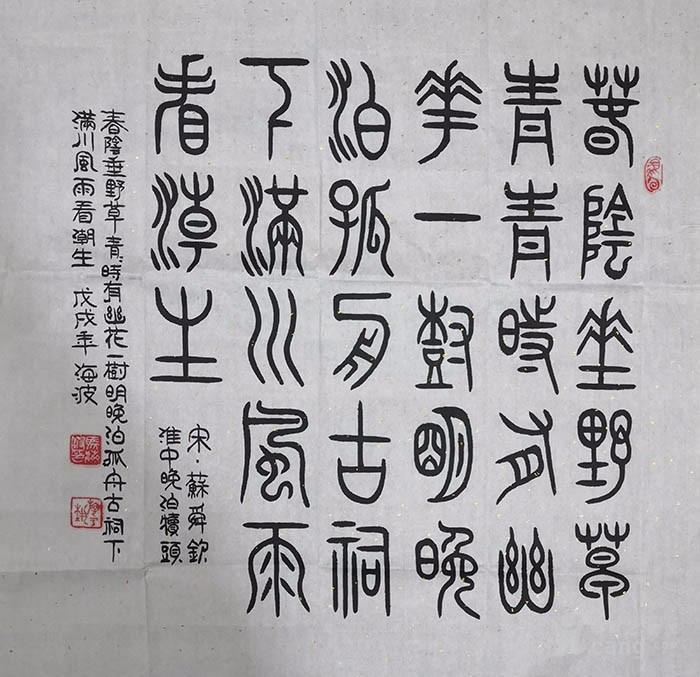 春陰垂野草
青青時有幽
花一樹明晚
泊孤舟古祠
下滿川風雨
看潮生
宋·蘇舜欽
淮中晚泊犢頭
春陰垂野草青青時有幽花一樹明晚泊孤舟古祠下
滿川風雨看潮生 戊戌年 海波